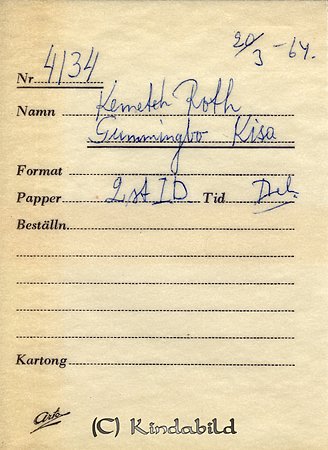 20/3 - 64.
Nr 4134
Namn Kenneth Roth
Gummingbo Kisa
Format
Papper 2 st ID Tid
Beställn.
Kartong
Ark
(C) Kindabild